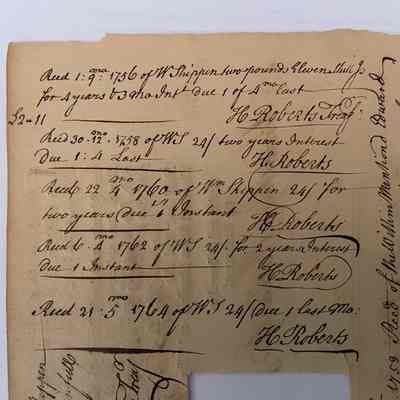 Recd 1: 9mo: 1756 of W Shippen two pounds Eleven Shill Js
for 4 years & 3 mo Intt Due 1 of 4mo last
£2=11
H Roberts Treasr
Recd 30=12mo=1758 of WS 24/ two years Interest
Due 1:4 Last
H Roberts
Recd 22 4mo 1760 of Wm Shippen 24/ for
two years Due 1 Instant
H Roberts
Recd 6:4mo 1762 of WS 24/ for 2 years Interest
Due 1 Instant
H Roberts
Recd 21=5mo 1764 of WS 24/ Due 1 last Mo:
H Roberts
1752 Recd of the Within Mentioned Edward
Shippen
full